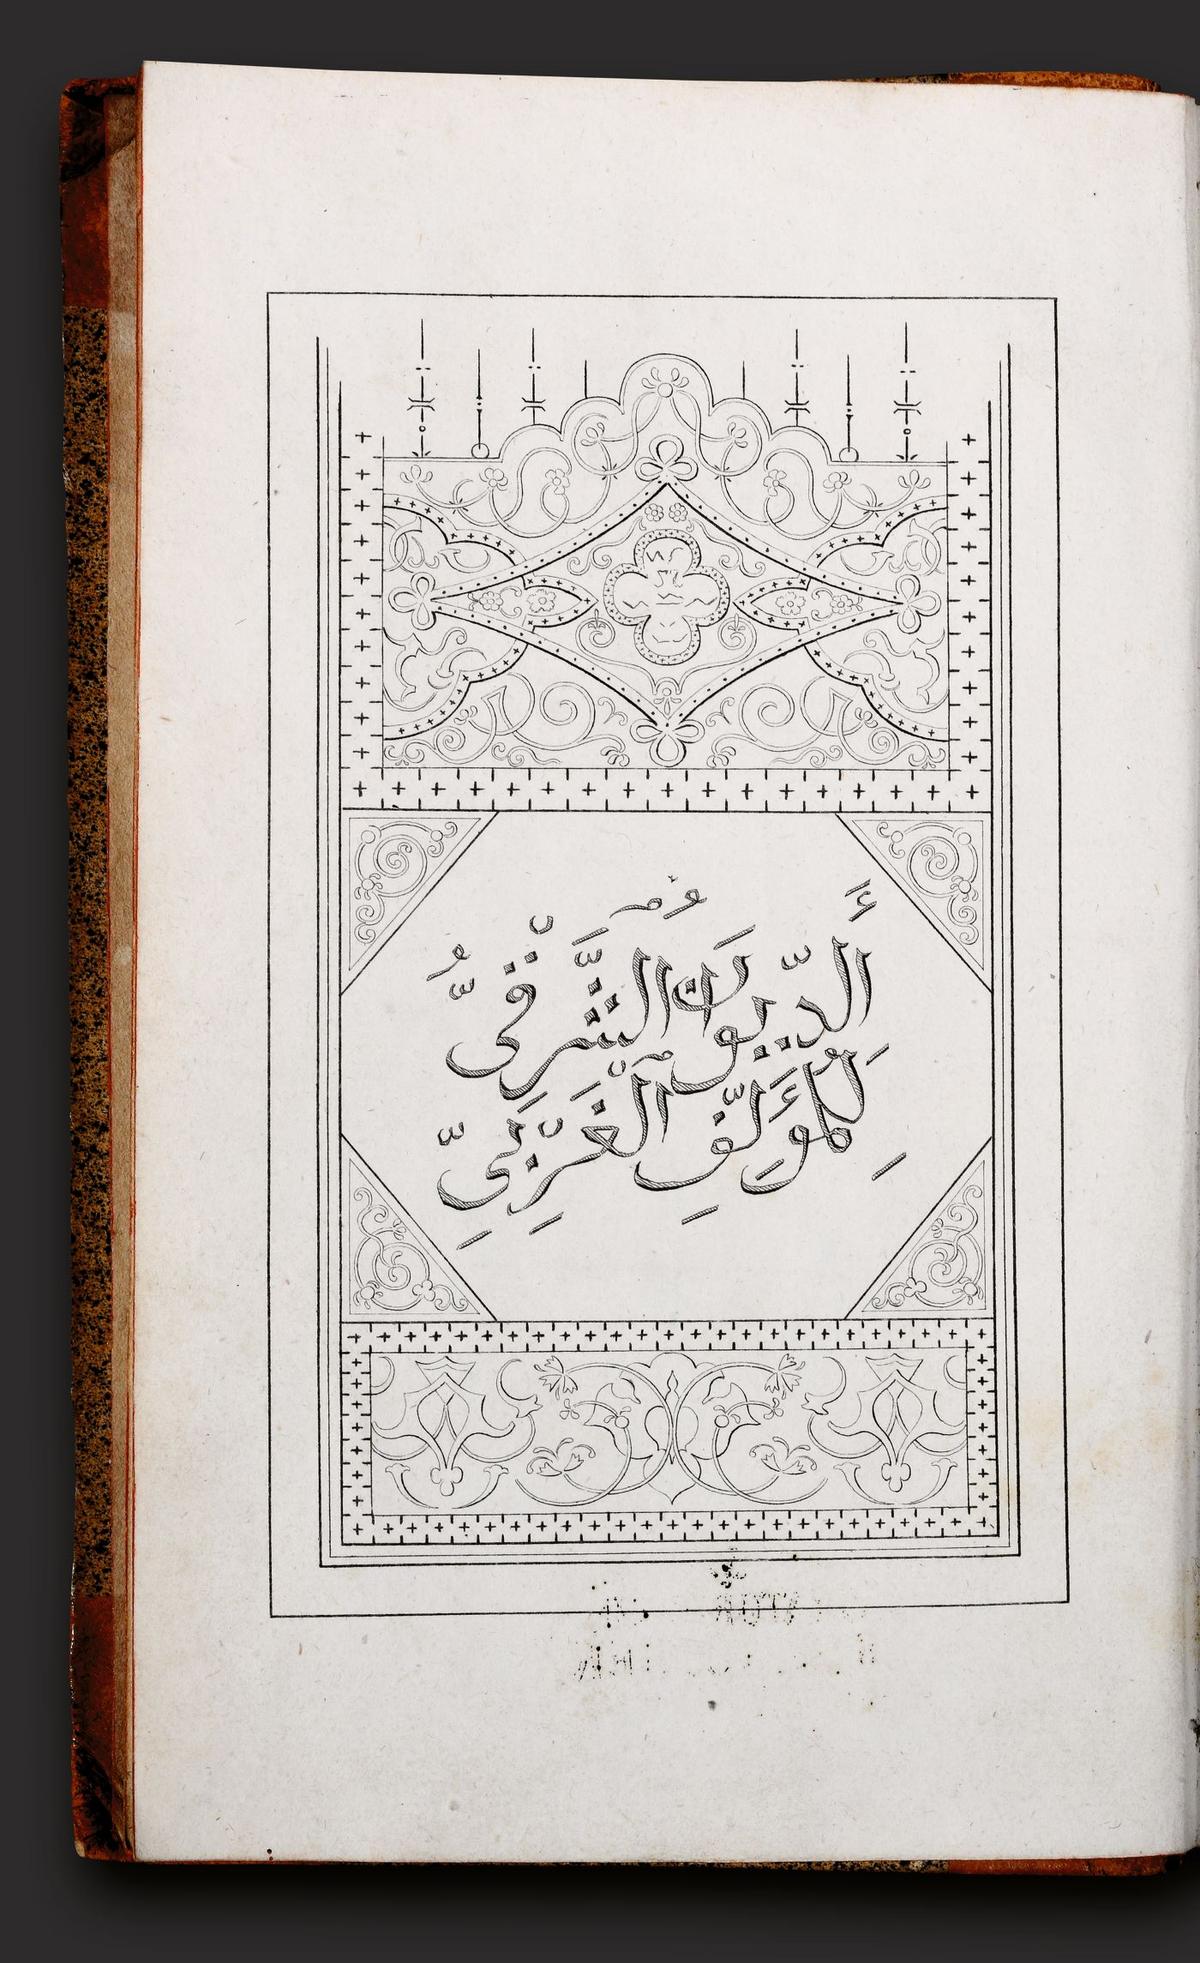 أَلدِّيوَانُ الشَّرْقِىُّ
لِلْمُؤَلِّفِ ٱلْغَرْبِىِّ